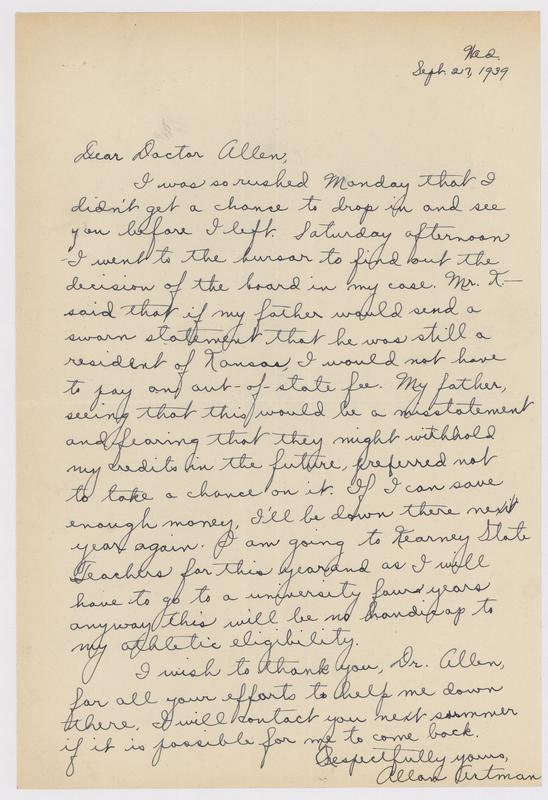 Wed.
Sept. 27, 1939
Dear Doctor Allen,
I was so rushed Monday that I
didn't get a chance to drop in and see
you before I left. Saturday afternoon
I went to the bursar to find out the
decision of the board in my case. Mr. K—
said that if my father would send a
sworn statement that he was still a
resident of Kansas, I would not have
to pay an out-of-state fee. My father,
seeing that this would be a misstatement
and fearing that they might withhold
my credits in the future, preferred not
to take a chance on it. If I can save
enough money, I'll be down there next
year again. I am going to Kearney State
Teachers for this year and as I will
have to go to a university four years
anyway this will be no handicap to
my athletic eligibility.
I wish to thank you, Dr. Allen,
for all your efforts to help me down
there. I will contact you next summer
if it is possible for me to come back.
Respectfully yours,
Allan Artman